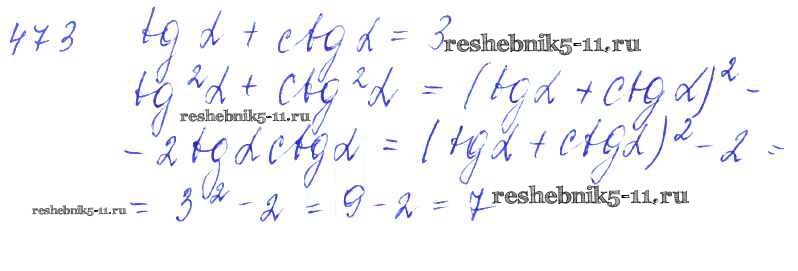 473 tg α + ctg α = 3 reshebnik5-11.ru
tg²α + ctg²α = (tg α + ctg α)² -
reshebnik5-11.ru
- 2 tg α ctg α = (tg α + ctg α)² - 2 =
reshebnik5-11.ru = 3² - 2 = 9 - 2 = 7 reshebnik5-11.ru